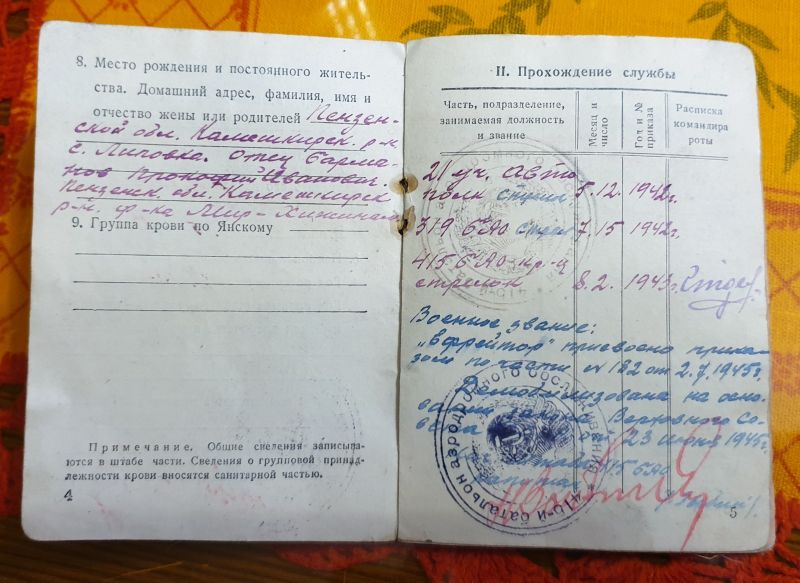 8. Место рождения и постоянного житель-
ства. Домашний адрес, фамилия, имя и
отчество жены или родителей Пензен-
ской обл. Камешкирск. р-н
с. Липовка. Отец Барма-
нов Прокофий Иванович.
Пензенск. обл. Камешкирск
р-н. ф-ка Мир-Хижина
9. Группа крови по Янскому
Примечание. Общие сведения записыва-
ются в штабе части. Сведения о групповой принад-
лежности крови вносятся санитарной частью.
4
II. Прохождение службы
Часть, подразделение,
занимаемая должность
и звание
Месяц и
число
Год и №
приказа
Расписка
командира
роты
21 уч. Авто
полк стрел. 5.12. 1942г.
319 БАО стрел 7.15 1942г.
415 БАО кр-ц
стрелок 8.2. 1943г.
Военное звание:
„Ефрейтор" присвоено прика-
зом по части № 182 от 2.7.1945г.
Демобилизована на осно-
вании закона Верховного Со-
вета от 23 июня 1945г.
415 БАО
415-й батальон аэродромного обслуживания
5